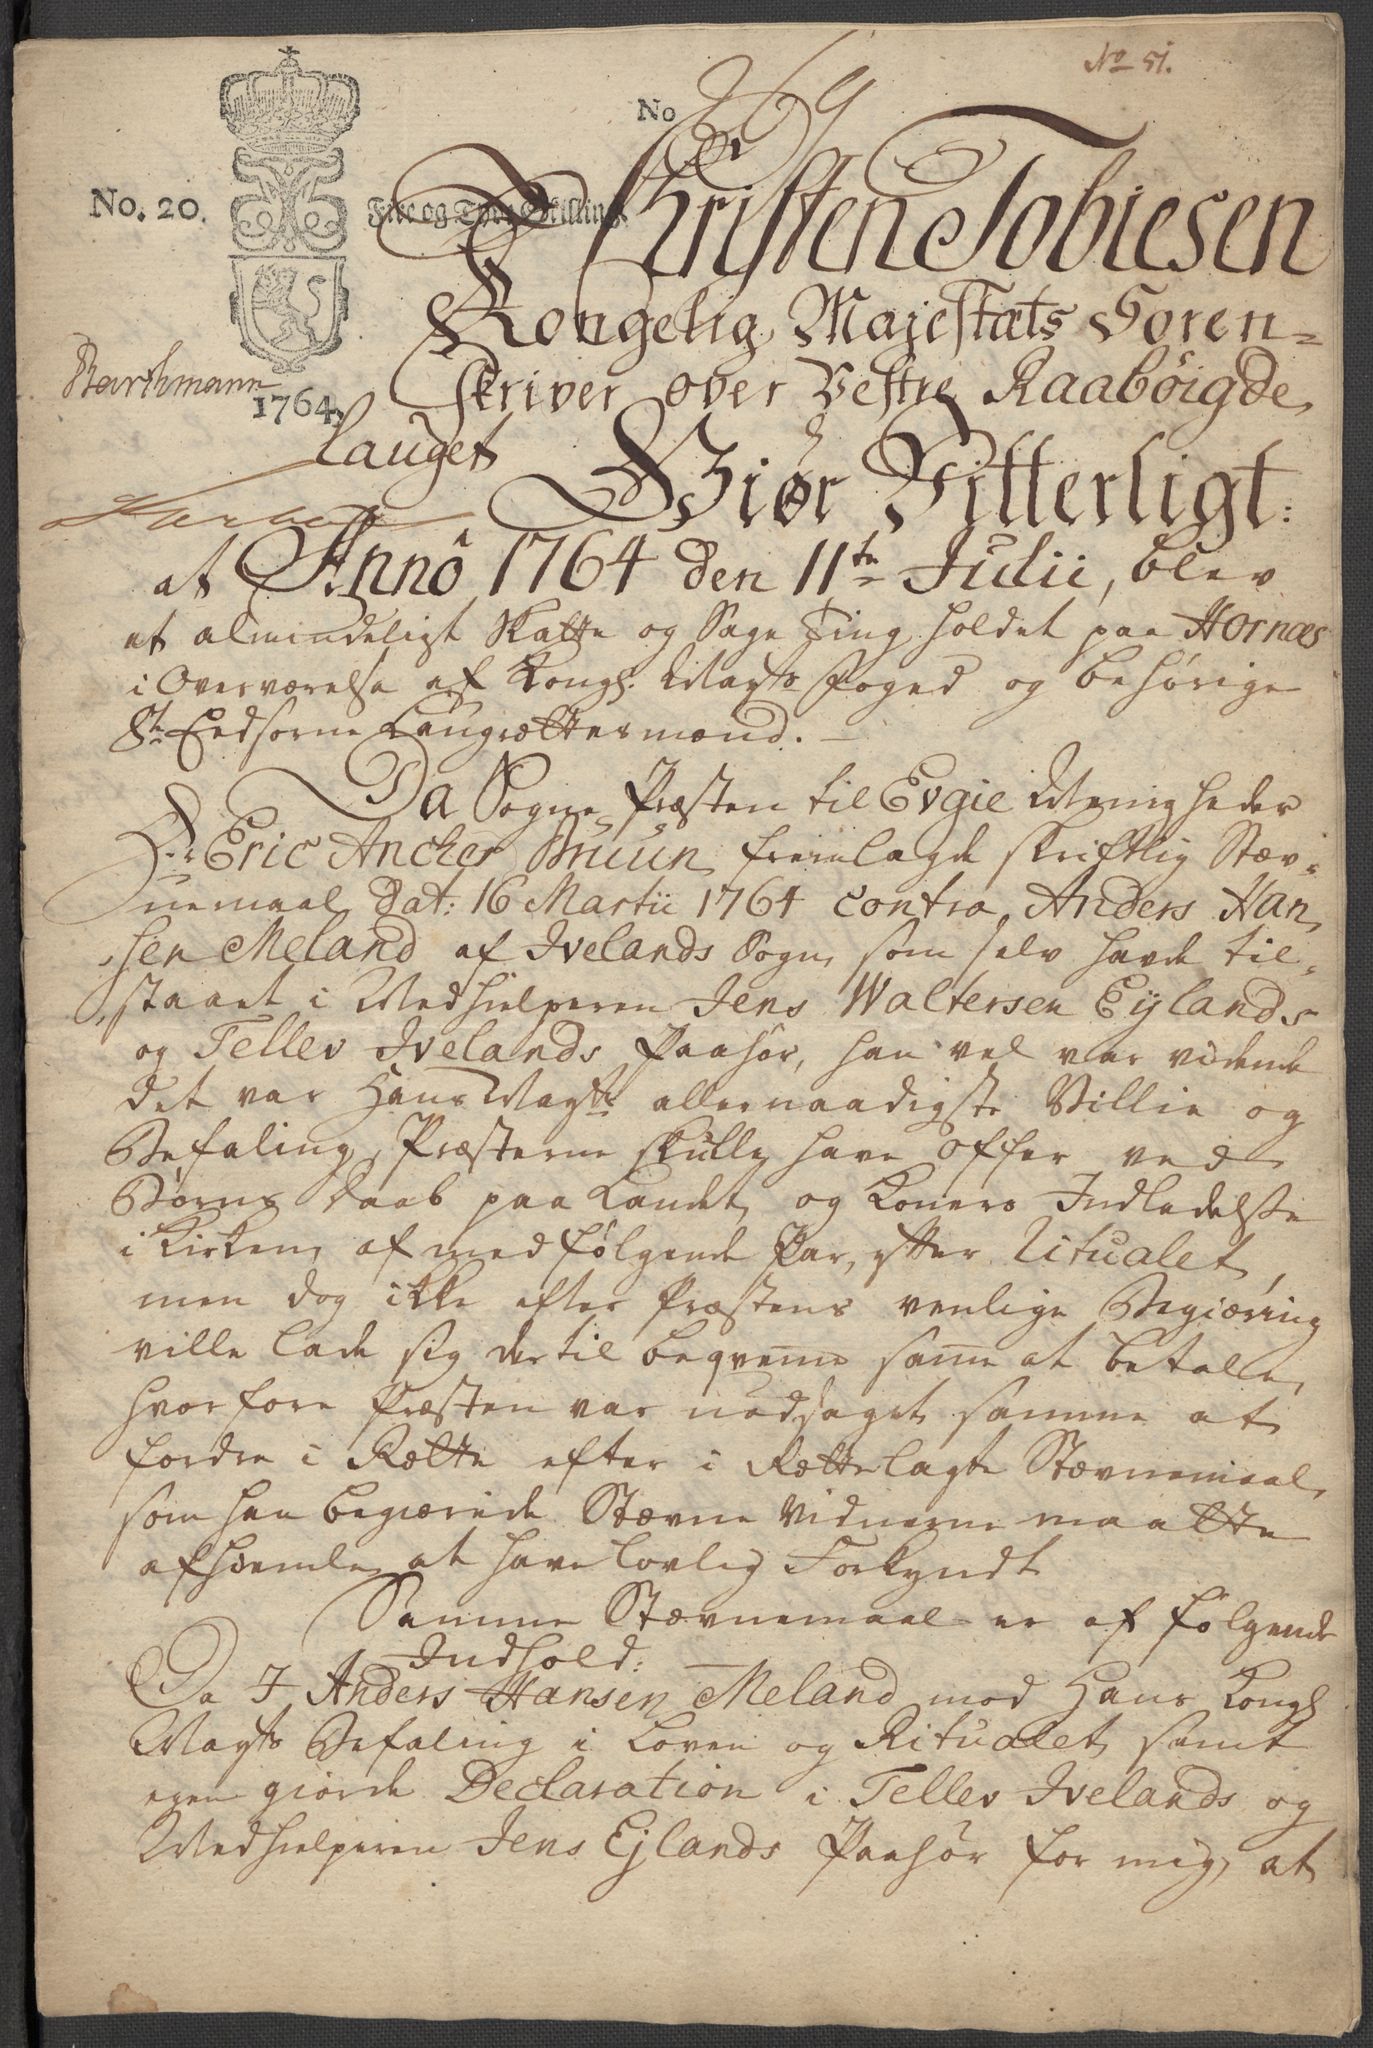 No 51.
No 269
No. 20.
Fire og Tyve Skilling.
Christen Tobiesen
Kongelig Majestæts Soren-
Barthmann
1764.
skriver over Vestre Raabøigde
lauget
Giør Vitterligt:
at Anno 1764 den 11te Julii, blev
et almindeligt Skatte og Sage Ting holdet paa Hornæs
i Overværelse af Kongl: Mayts Foged og behørige
8te Eedsorne Laugrettesmænd.
Da Sogne Præsten til Evgie Menigheder
Hr: Eric Ancher Bruun fremlagde skriftlig Stæv-
nemaal Dat: 16 Martii 1764 contra Anders Han-
sen Meland af Ivelands Sogn, som selv havde til-
staaet i Medhielperen Jens Waltersen Eylands
og Tellev Ivelands Paahør, han vel var vidende
det var Hans Mayts allernaadigste Villie og
Befaling, Præsterne skulle have Offer ved
Børns Daab paa Landet, og Koners Indledelse
i Kirken, af medfølgende Par, efter Ritualet,
men dog ikke efter Præstens venlige Begiæring
ville lade sig dertil beqveme samme at betale,
hvorfore Præsten var nødsaget samme at
fordre i Rette efter i Rettelagte Stævnemaal,
som han begiærede Stævne Vidnerne maatte
afhiemle at have lovlig Forkyndt
Samme Stævnemaal er af følgende
Indhold:
Da I Anders Hansen Meland mod Hans Kongl
Mayts Befaling i Loven og Ritualet samt
egen giorde Declaration i Tellev Ivelands og
Medhielperen Jens Ejlands Paahør for mig, at